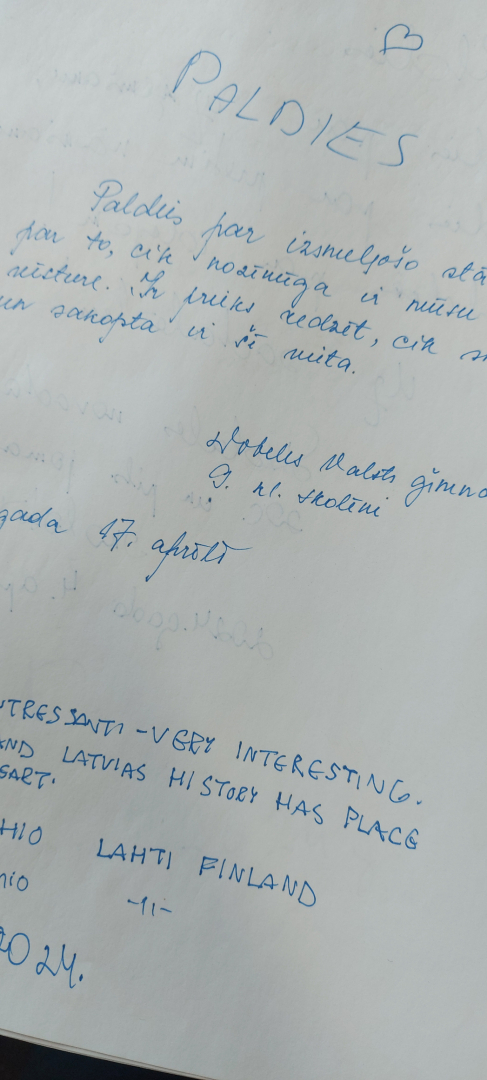 PALDIES
Paldies par izsmeļošo stā
par to, cik nozīmīga ir mūsu
vēsture. Ir prieks redzēt, cik s
un sakopta ir šī vieta.
Dobeles Valsts ģimna
9. kl. skolēni
gada 17. aprīlī
NTRESSANTI - VERY INTERESTING.
AND LATVIAS HISTORY HAS PLACE
HIO LAHTI FINLAND
HIO -11-
2024.